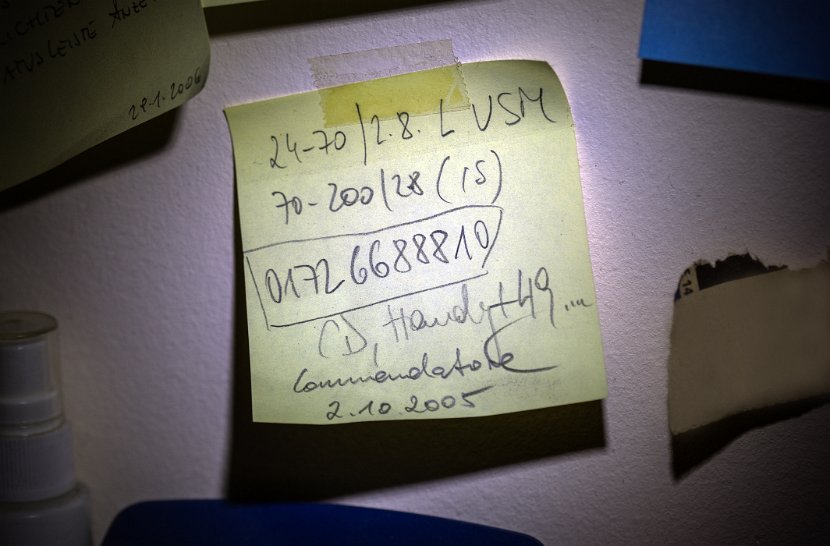 ATUSLEISTE
29.1.2006
24-70/2.8. L USM
70-200/28 (IS)
01726688810
CD, Handy +49...
Commendatore
2.10.2005